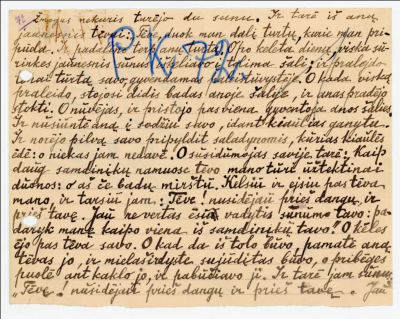 žmogus nekuris turėjo du sunu. Ir tarė iš anų
jaunesnis tėvui: Tėve, duok man dalį turtų, kurie man pri-
puola. Ir padalino tarp anų turtą. O po keleto dienų, viską su-
rinkęs jaunesnis sūnus iškeliavo į tolimą šalį, ir pralejdo
tinai turtą savo, gyvendamas
P.K. 72.
O kada viską
praleido, stojosi didis badas anoje šalyje, ir anas pradėjo
stokti. O nuvėjęs, ir pristojo pas vieną gyventoją anos šalies.
Ir nusiuntė aną į sodžių savo, idant kiaulių ganytų.
Ir norėjo pilvą savo pripuldyt saladynomis, kurias kiaulės
ėdė: o niekas jam nedavė. O susidumojęs savije tarė: Kaip
daug samdinikų namuose tėvo mano turė užtektinai
duonos: o aš čė badu mirštu. Kelsiu ir ejsiu pas tėvą
mano, ir tarsiu jam: Tėve! nusidėjau prieš dangų, ir
prieš tavę. Jau nevertas ėsu vadytis sūnumo tavo: pa-
daryk manę kaipo viena iš samdinikų tavo! O kėlęs
ėjo pas tėva savo. O kad da iš tolo buvo, pamatė aną
tėvas jo, ir mielaširdyste sujudįtas buvo, o pribėgęs
puolė ant kaklo jo, ir pabučiavo jį. Ir tarė jam sūnus:
„Tėve! nusidėjau prieš dangų ir prieš tavę. Jau